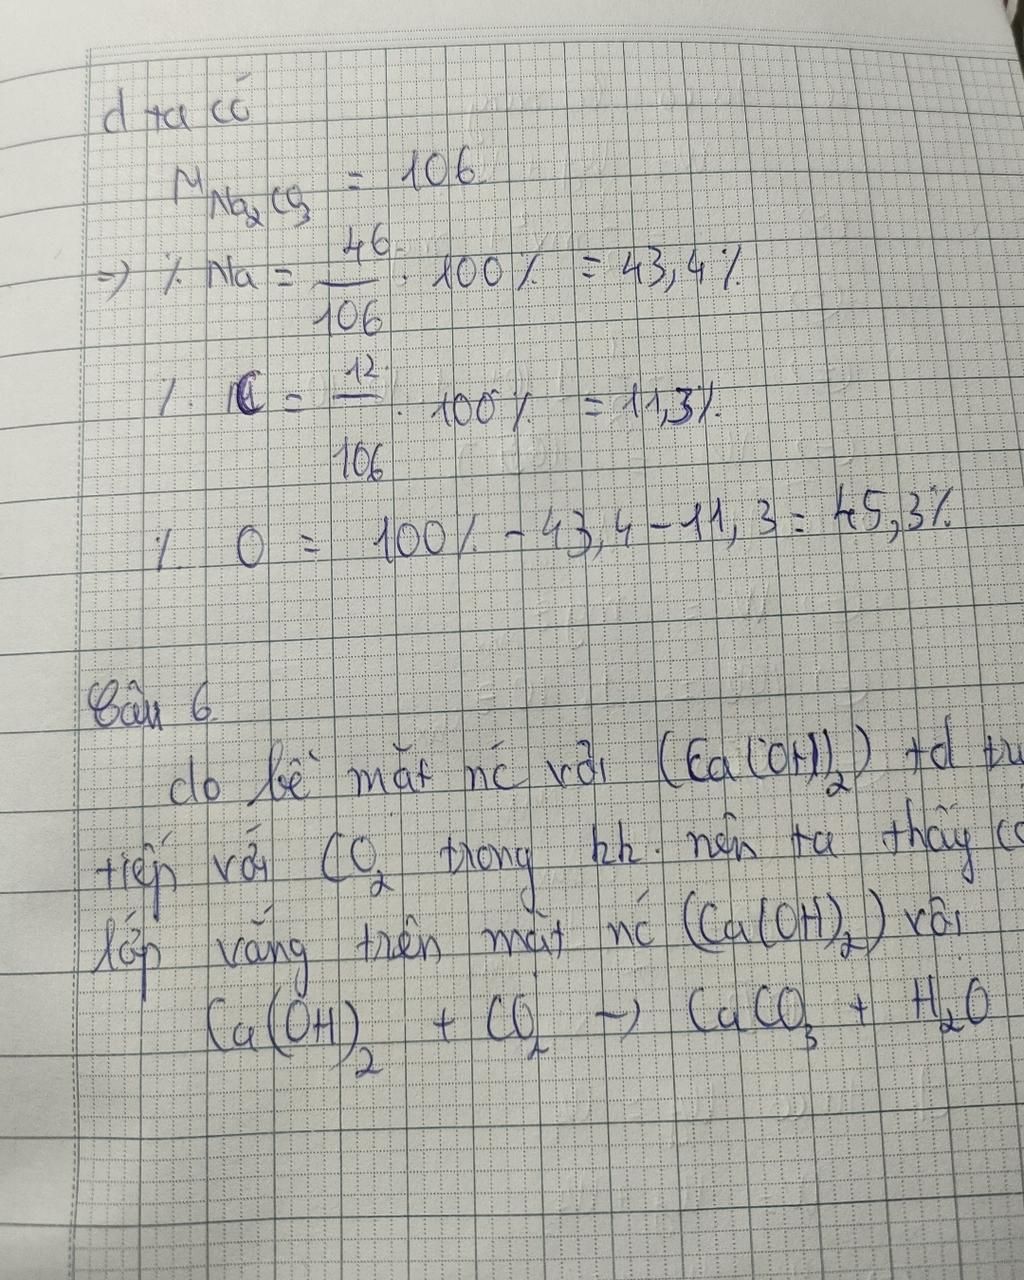 d ta có
M Na₂CO₃ = 106
=> % Na = 46/106 . 100% = 43,4%
% C = 12/106 . 100% = 11,3%
% O = 100% - 43,4 - 11,3 = 45,3%
Câu 6
do bề mặt nc vôi (Ca(OH)₂) td
tiếp với CO₂ trong kk. nên ta thấy
lớp váng trên mặt nc (Ca(OH)₂) vôi
Ca(OH)₂ + CO₂ → CaCO₃ + H₂O